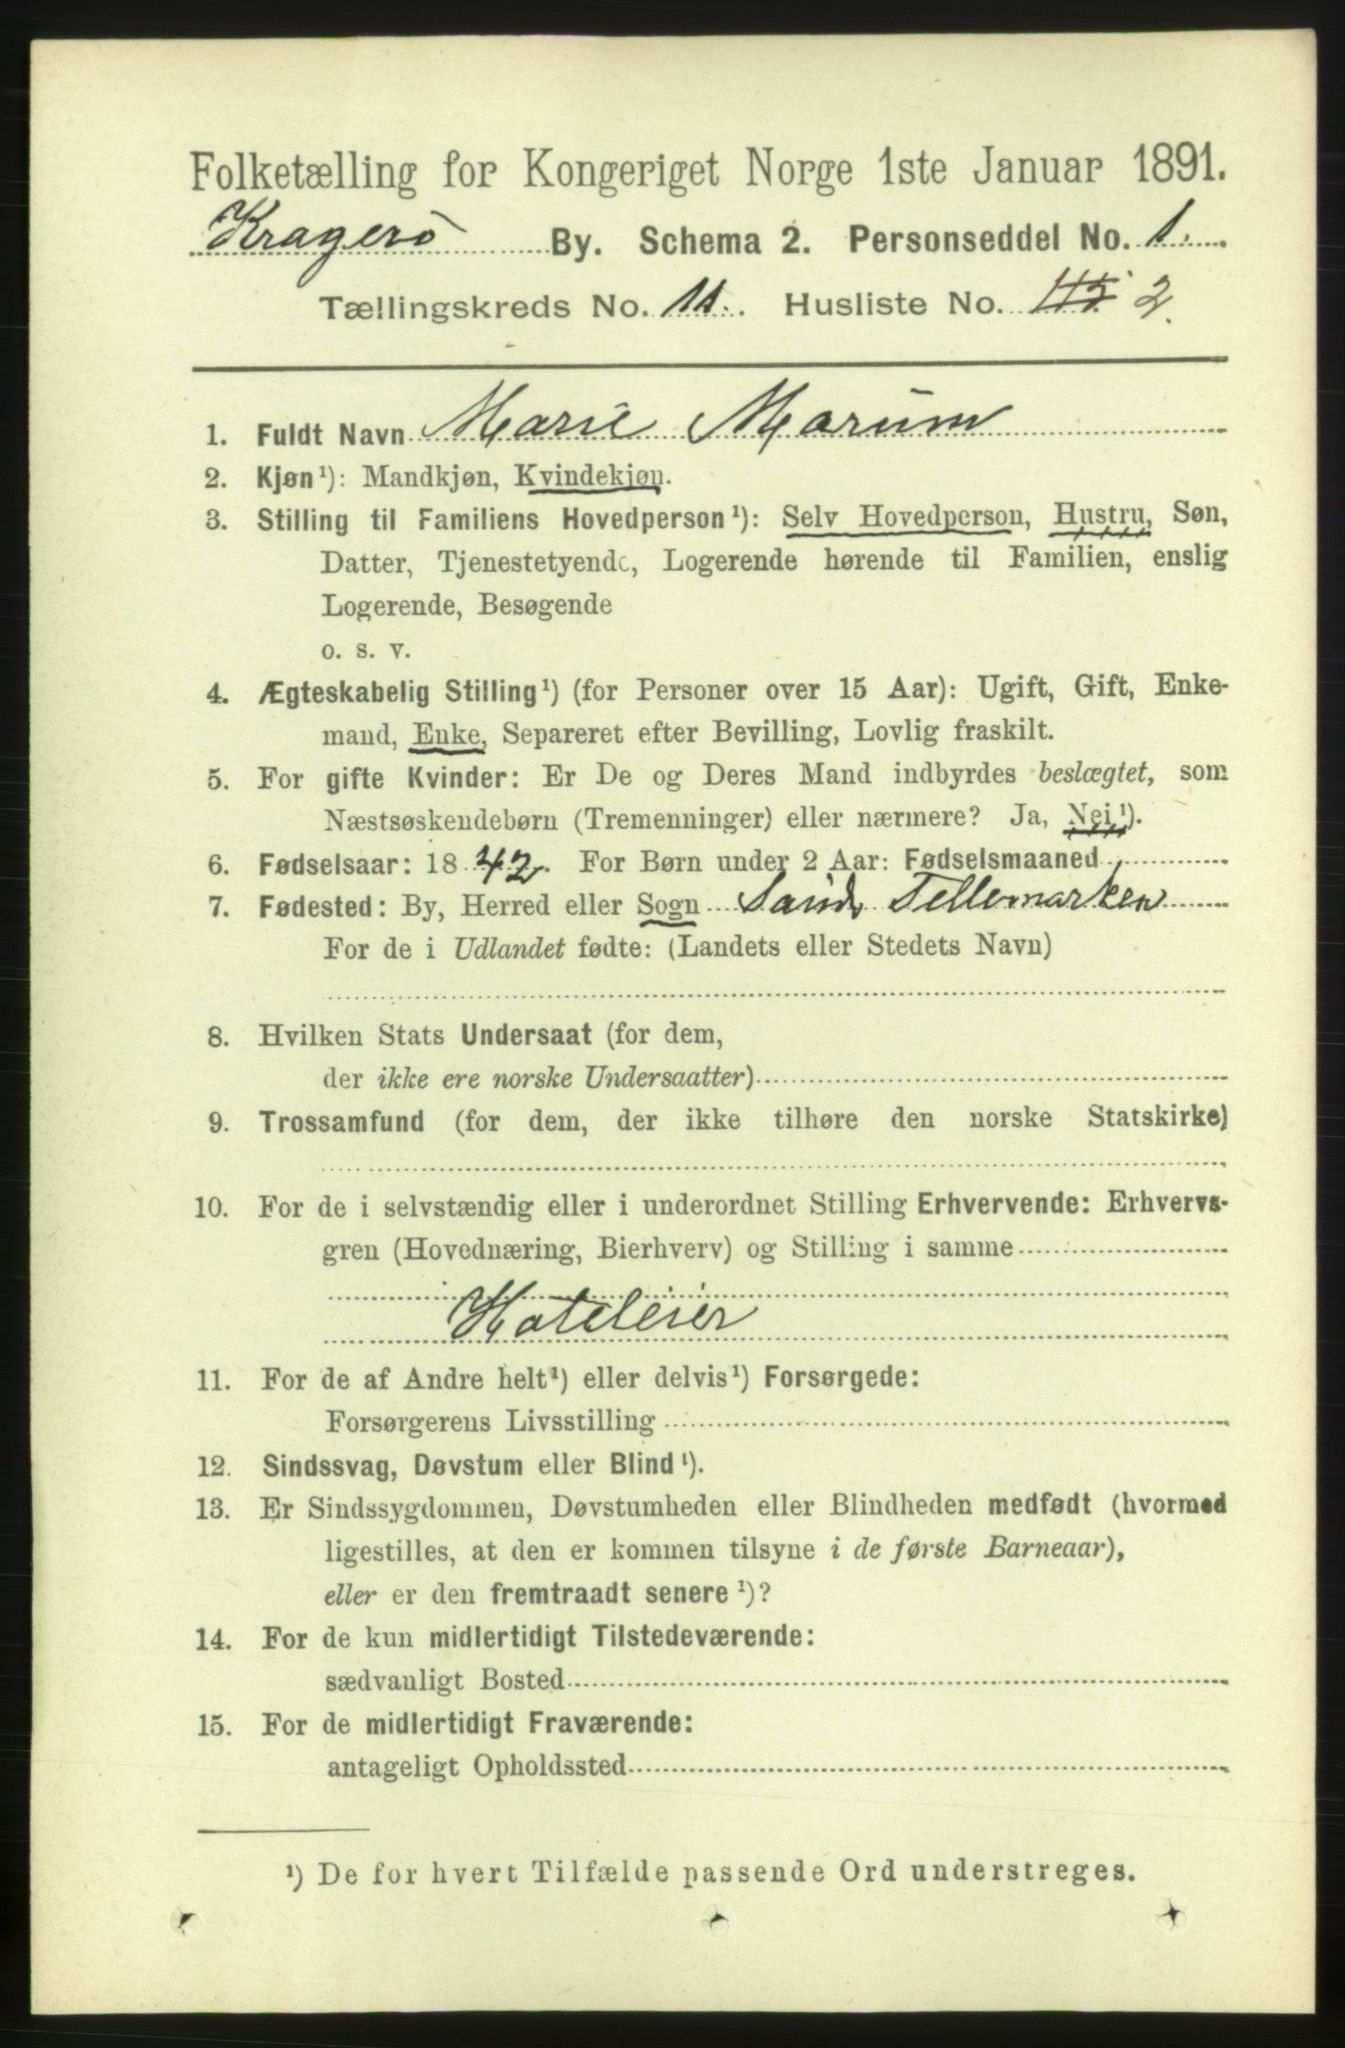 Folketælling for Kongeriget Norge 1ste Januar 1891.
Kragerö By. Schema 2. Personseddel No. 1.
Tællingskreds No. 11. Husliste No. 2.
1. Fuldt Navn Marie Marum
2. Kjøn¹): Mandkjøn, Kvindekjøn.
3. Stilling til Familiens Hovedperson¹): Selv Hovedperson, Hustru, Søn,
Datter, Tjenestetyende, Logerende hørende til Familien, enslig
Logerende, Besøgende
o. s. v.
4. Ægteskabelig Stilling¹) (for Personer over 15 Aar): Ugift, Gift, Enke-
mand, Enke, Separeret efter Bevilling, Lovlig fraskilt.
5. For gifte Kvinder: Er De og Deres Mand indbyrdes beslægtet, som
Næstsøskendebørn (Tremenninger) eller nærmere? Ja, Nei¹).
6. Fødselsaar: 1842. For Børn under 2 Aar: Fødselsmaaned
7. Fødested: By, Herred eller Sogn Tellemarken
For de i Udlandet fødte: (Landets eller Stedets Navn)
8. Hvilken Stats Undersaat (for dem,
der ikke ere norske Undersaatter)
9. Trossamfund (for dem, der ikke tilhøre den norske Statskirke)
10. For de i selvstændig eller i underordnet Stilling Erhvervende: Erhvervs-
gren (Hovednæring, Bierhverv) og Stilling i samme
Hoteleier
11. For de af Andre helt¹) eller delvis¹) Forsørgede:
Forsørgerens Livsstilling
12. Sindssvag, Døvstum eller Blind¹).
13. Er Sindssygdommen, Døvstumheden eller Blindheden medfødt (hvormed
ligestilles, at den er kommen tilsyne i de første Barneaar),
eller er den fremtraadt senere¹)?
14. For de kun midlertidigt Tilstedeværende:
sædvanligt Bosted
15. For de midlertidigt Fraværende:
antageligt Opholdssted
¹) De for hvert Tilfælde passende Ord understreges.